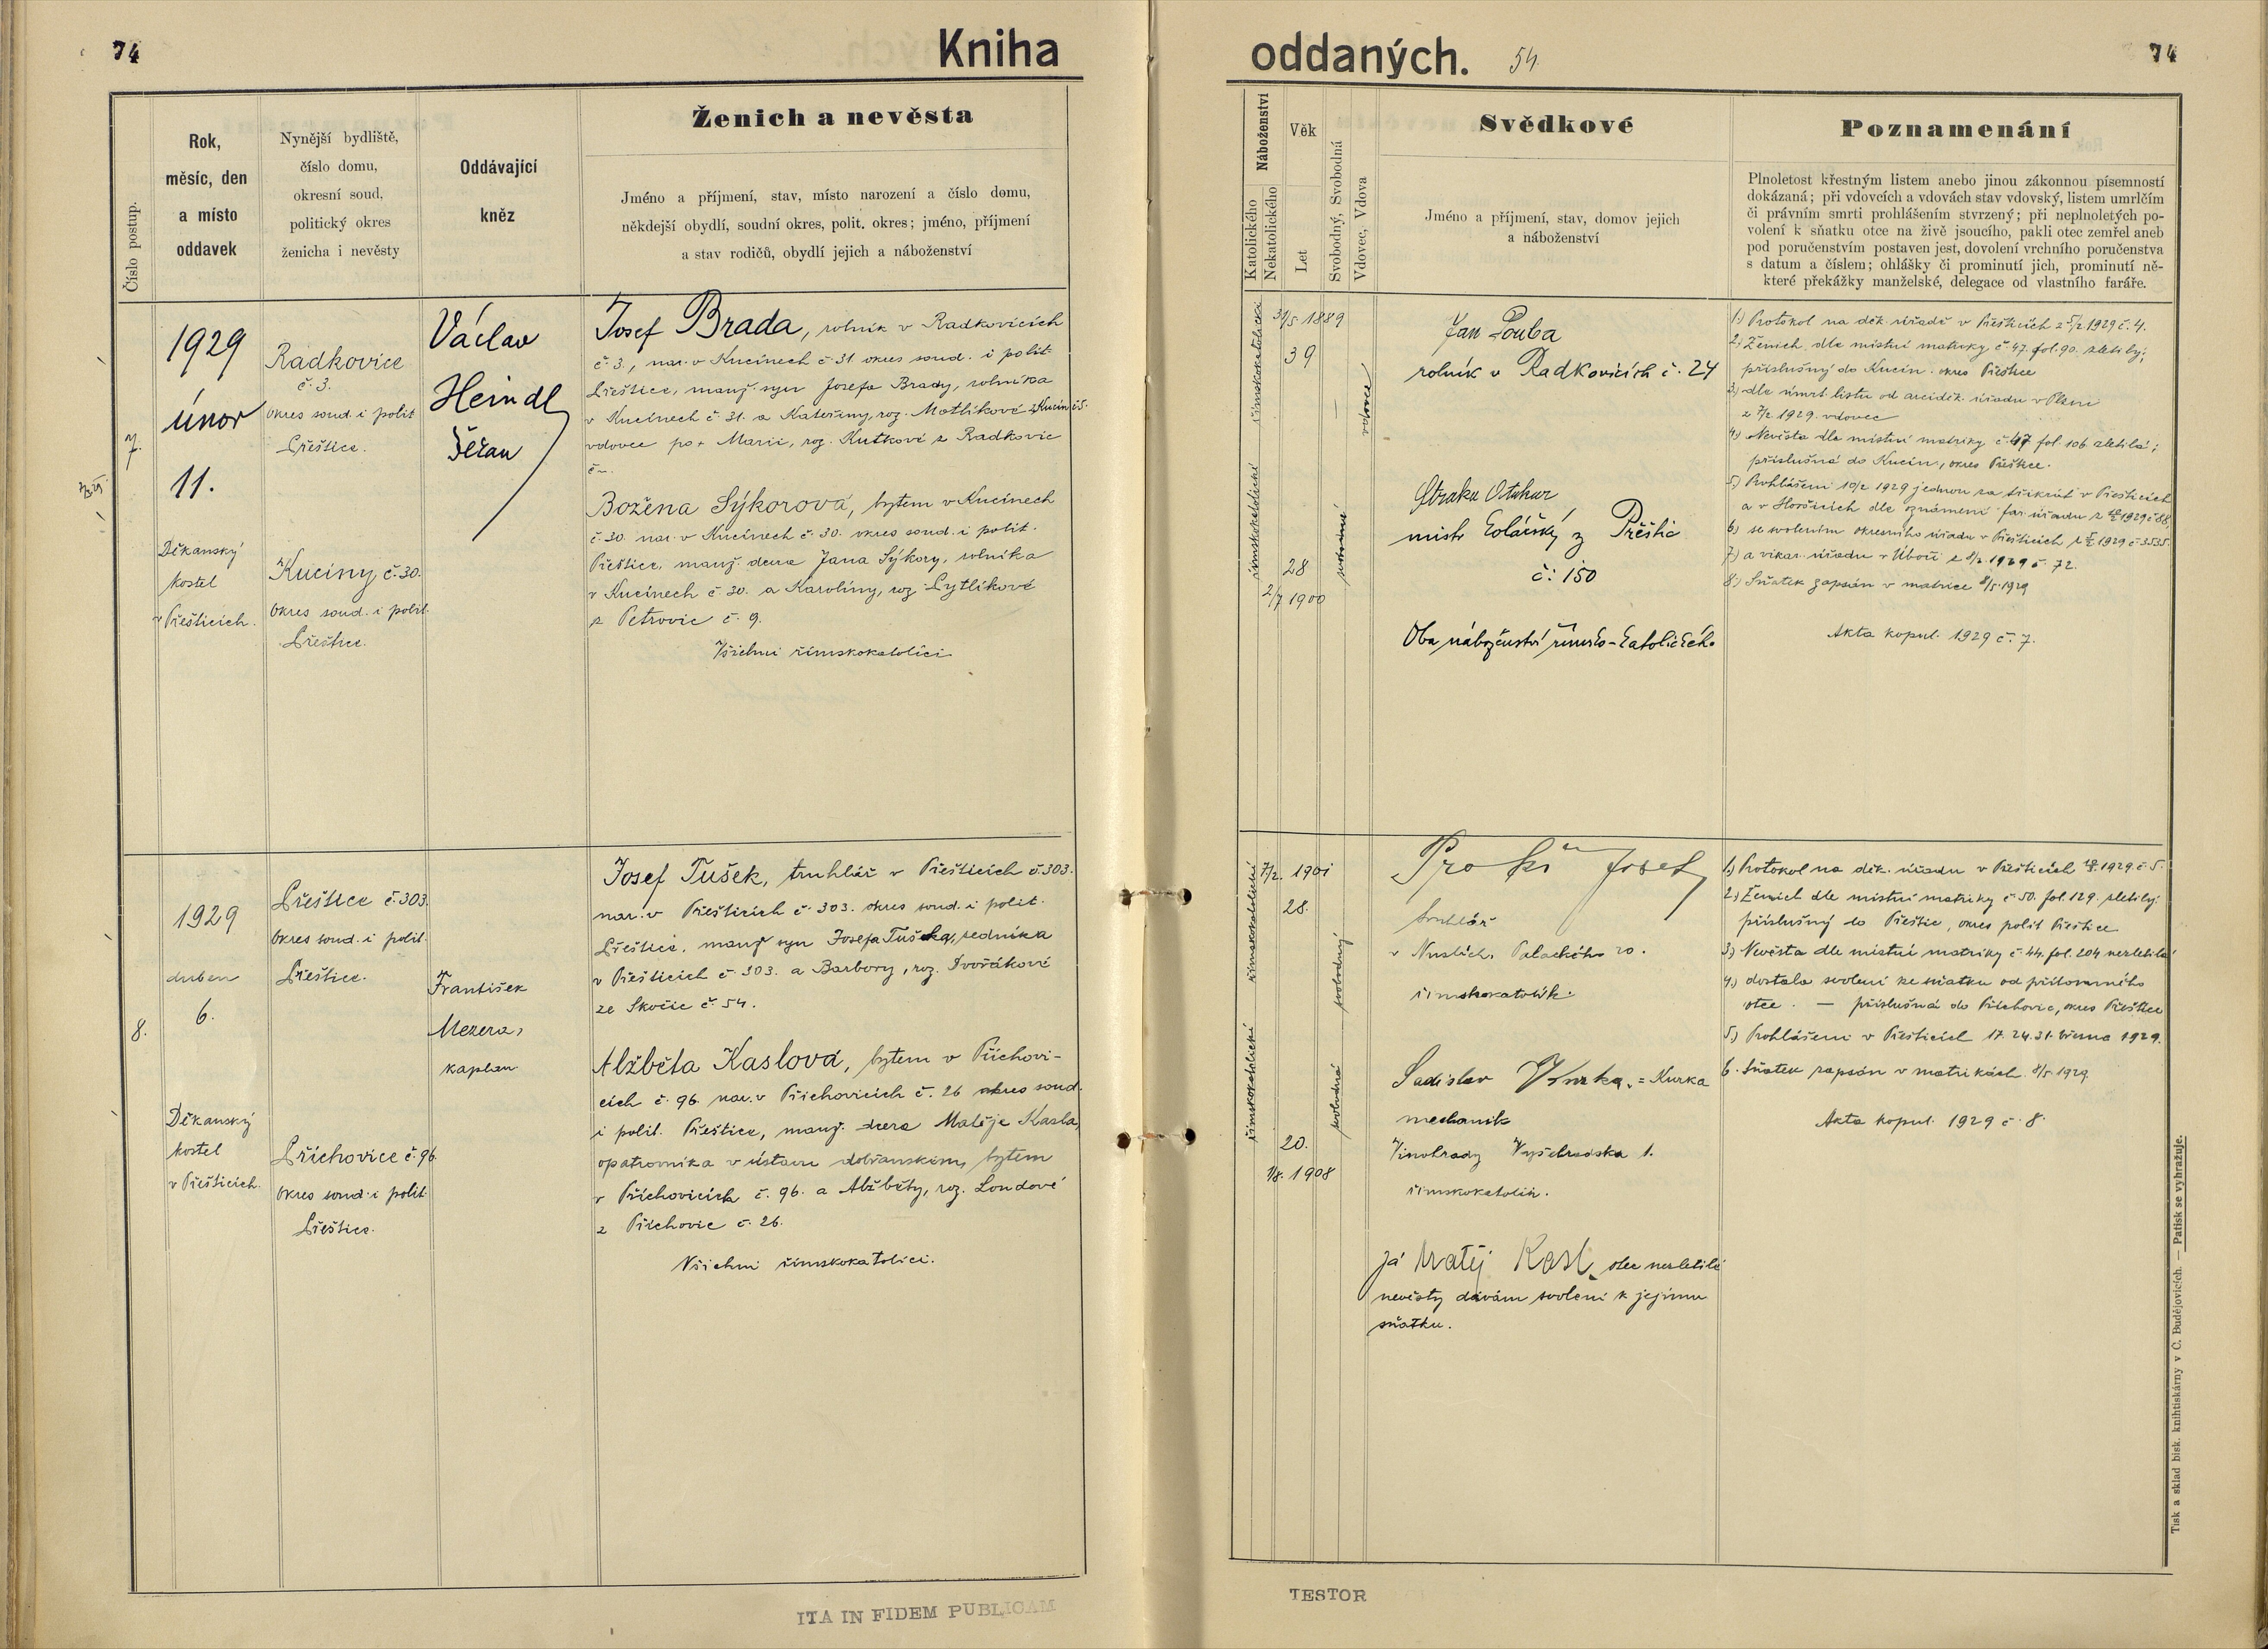 74
Kniha
Číslo postup.
Rok,
měsíc, den
a místo
oddavek
Nynější bydliště,
číslo domu,
okresní soud,
politický okres
ženicha i nevěsty
Oddávající
kněz
Ženich a nevěsta
Jméno a příjmení, stav, místo narození a číslo domu,
někdejší obydlí, soudní okres, polit. okres; jméno, příjmení
a stav rodičů, obydlí jejich a náboženství
7.
1929
únor
11.
Děkanský
kostel
v Přešticích.
Radkovice
č. 3.
okres soud. i polit
Přeštice.
Kuciny č. 30.
okres soud. i polit.
Přeštice.
Václav
Heindl
děkan
Josef Brada, rolník v Radkovicích
č. 3, nar. v Kucínech č. 31 okres soud. i polit.
Přeštice, manž. syn Josefa Brady, rolníka
v Kucínech č. 31. a Kateřiny, roz. Motlíkové z Kucín č. 5.
vdovec po + Marii, roz. Kutkové z Radkovic
Božena Sýkorová, bytem v Kucínech
č. 30. nar. v Kucínech č. 30. okres soud. i polit.
Přeštice, manž. dcera Jana Sýkory, rolníka
v Kucínech č. 30. a Karolíny, roz. Lytlíkové
z Petrovic č. 9.
Všichni římskokatolíci
8.
1929
duben
6.
Děkanský
kostel
v Přešticích.
Přeštice č. 303.
okres soud. i polit.
Přeštice.
Příchovice č. 96.
okres soud. i polit.
Přeštice.
František
Mezera,
kaplan.
Josef Tušek, truhlář v Přešticích č. 303.
nar. v Přešticích č. 303. okres soud. i polit.
Přeštice, manž. syn Josefa Tuška, sedníka
v Přešticích č. 303. a Barbory, roz. Dvořákové
ze Skočic č. 54.
Alžběta Kaslová, bytem v Příchovi-
cích č. 96. nar. v Příchovicích č. 26 okres soud.
i polit. Přeštice, manž. dcera Matěje Kasla,
opatrovníka v ústavu dobřanském, bytem
v Příchovicích č. 96. a Alžběty, roz. Loudové
z Příchovic č. 26.
Všichni římskokatolíci.
ITA IN FIDEM PUBLICAM
oddaných.
54
74
Náboženství
Katolického
Nekatolického
Věk
Let
Svobodný, Svobodná
Vdovec, Vdova
Svědkové
Jméno a příjmení, stav, domov jejich
a náboženství
Poznamenání
Plnoletost křestným listem anebo jinou zákonnou písemností
dokázaná; při vdovcích a vdovách stav vdovský, listem umrlčím
či právním smrti prohlášením stvrzený; při neplnoletých po-
volení k sňatku otce na živě jsoucího, pakli otec zemřel aneb
pod poručenstvím postaven jest, dovolení vrchního poručenstva
s datum a číslem; ohlášky či prominutí jich, prominutí ně-
které překážky manželské, delegace od vlastního faráře.
římskokatolické
31/5 1889
39
vdovec
římskokatolické
28
2/7 1900
svobodná
Jan Pouba
rolník v Radkovicích č. 24
Straka Otakar
mistr kolářský z Přeštic
č: 150
Oba náboženství římsko-katolického
1.) Protokol na děk. úřadě v Přešticích z 5/2 1929 č. 4.
2.) Ženich dle místní matriky č. 47. fol. 90. zletilý;
příslušný do Kucín. okres Přeštice
3.) dle úmrt. listu od arciděk. úřadu v Plzni
z 7/2 1929. vdovec
4.) Nevěsta dle místní matriky č. 47 fol. 106. zletilá;
příslušná do Kucín, okres Přeštice.
5.) Prohlášeni 10/2 1929 jednou za třikrát v Přešticích
a v Horšicích dle oznámení far. úřadu z 10/2 1929 č. 88.
6.) se svolením okresního úřadu v Přešticích
7.) a vikar. úřadu v Úboči z 8/2 1929 č. 72.
8.) Sňatek zapsán v matrice 8/5 1929
Akta kopul. 1929 č. 7.
římskokatolické
7/2. 1901
28.
svobodný
římskokatolické
20.
1/8. 1908
svobodná
Josef
truhlář
v Nuslích, Palackého 20.
římskokatolík.
Ladislav Kurka. = Kurka
mechanik
Vinohrady Vyšehradská 1.
římskokatolík.
Já Matěj Kasl, otec nezletilé
nevěsty dávám svolení k jejímu
sňatku.
1.) Protokol na děk. úřadu v Přešticích 1929 č. 5.
2.) Ženich dle místní matriky č. 50. fol. 129. zletilý
příslušný do Přeštic, okres polit Přeštice
3.) Nevěsta dle místní matriky č. 44. fol. 204 nezletilá
4.) dostala svolení ke sňatku od přítomného
otce. — příslušná do Příchovic, okres Přeštice
5.) Prohlášeni v Přešticích 17. 24. 31. března 1929.
6. Sňatek zapsán v matrikách 8/5 1929.
Akta kopul. 1929 č. 8.
Tisk a sklad bisk. knihtiskárny v Č. Budějovicích. — Patisk se vyhražuje.
TESTOR